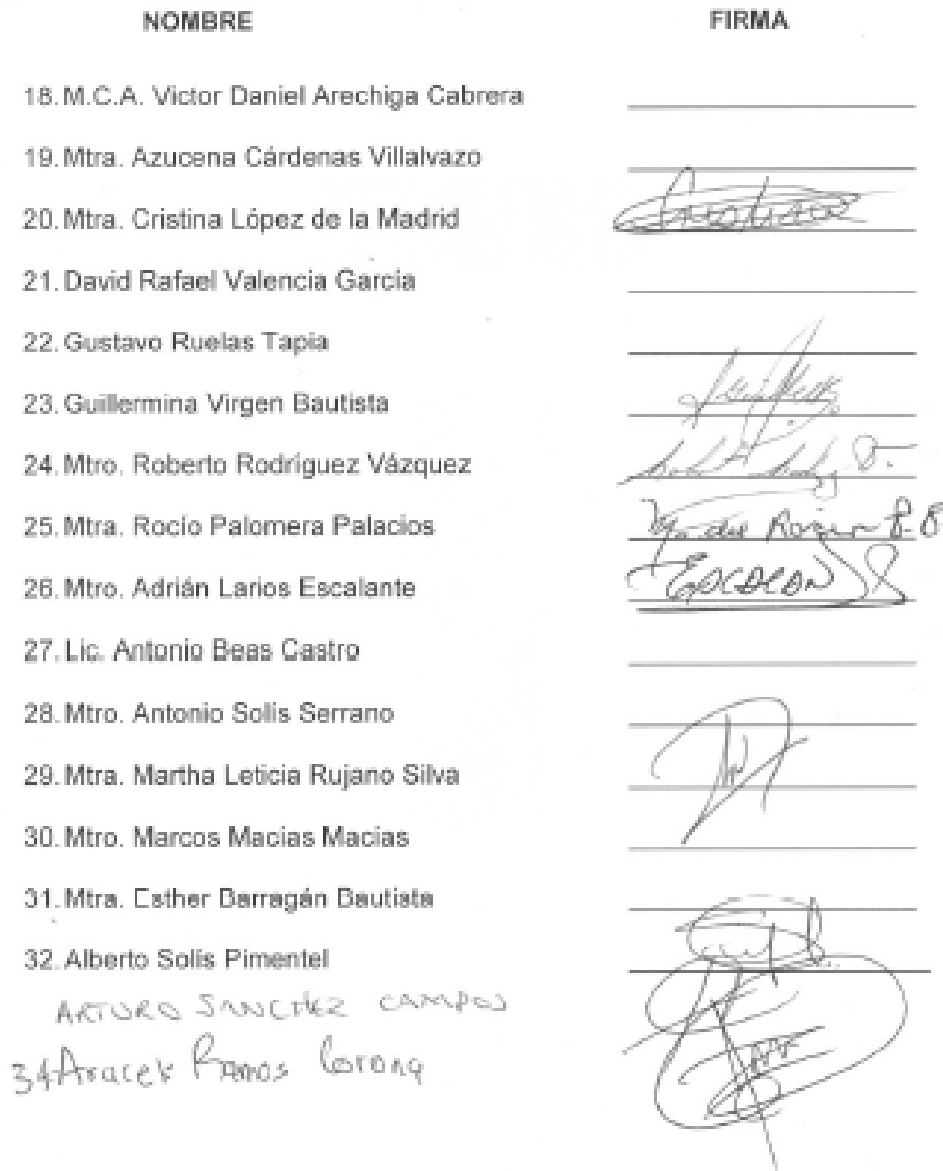 NOMBRE FIRMA
18. M.C.A. Victor Daniel Arechiga Cabrera
19. Mtra. Azucena Cárdenas Villalvazo
20. Mtra. Cristina López de la Madrid
21. David Rafael Valencia García
22. Gustavo Ruelas Tapia
23. Guillermina Virgen Bautista
24. Mtro. Roberto Rodríguez Vázquez
25. Mtra. Rocío Palomera Palacios
26. Mtro. Adrián Larios Escalante
27. Lic. Antonio Beas Castro
28. Mtro. Antonio Solis Serrano
29. Mtra. Martha Leticia Rujano Silva
30. Mtro. Marcos Macias Macias
31. Mtra. Esther Barragán Bautista
32. Alberto Solis Pimentel
ARTURO SANCHEZ CAMPOS
34 Araceli Ramos Corona